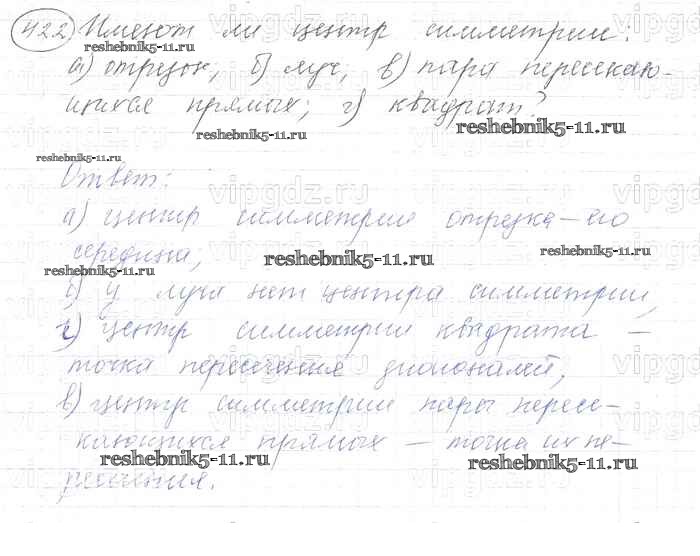 422 Имеют ли центр симметрии:
а) отрезок; б) луч; в) пара пересекаю-
щихся прямых; г) квадрат?
Ответ:
а) центр симметрии отрезка – его
середина;
б) у луча нет центра симметрии,
г) центр симметрии квадрата –
точка пересечения диагоналей,
в) центр симметрии пары пересе-
кающихся прямых – точка их пе-
ресечения.
reshebnik5-11.ru
reshebnik5-11.ru
reshebnik5-11.ru
reshebnik5-11.ru
reshebnik5-11.ru
reshebnik5-11.ru
reshebnik5-11.ru
reshebnik5-11.ru
reshebnik5-11.ru
vipgdz.ru
vipgdz.ru
vipgdz.ru
vipgdz.ru